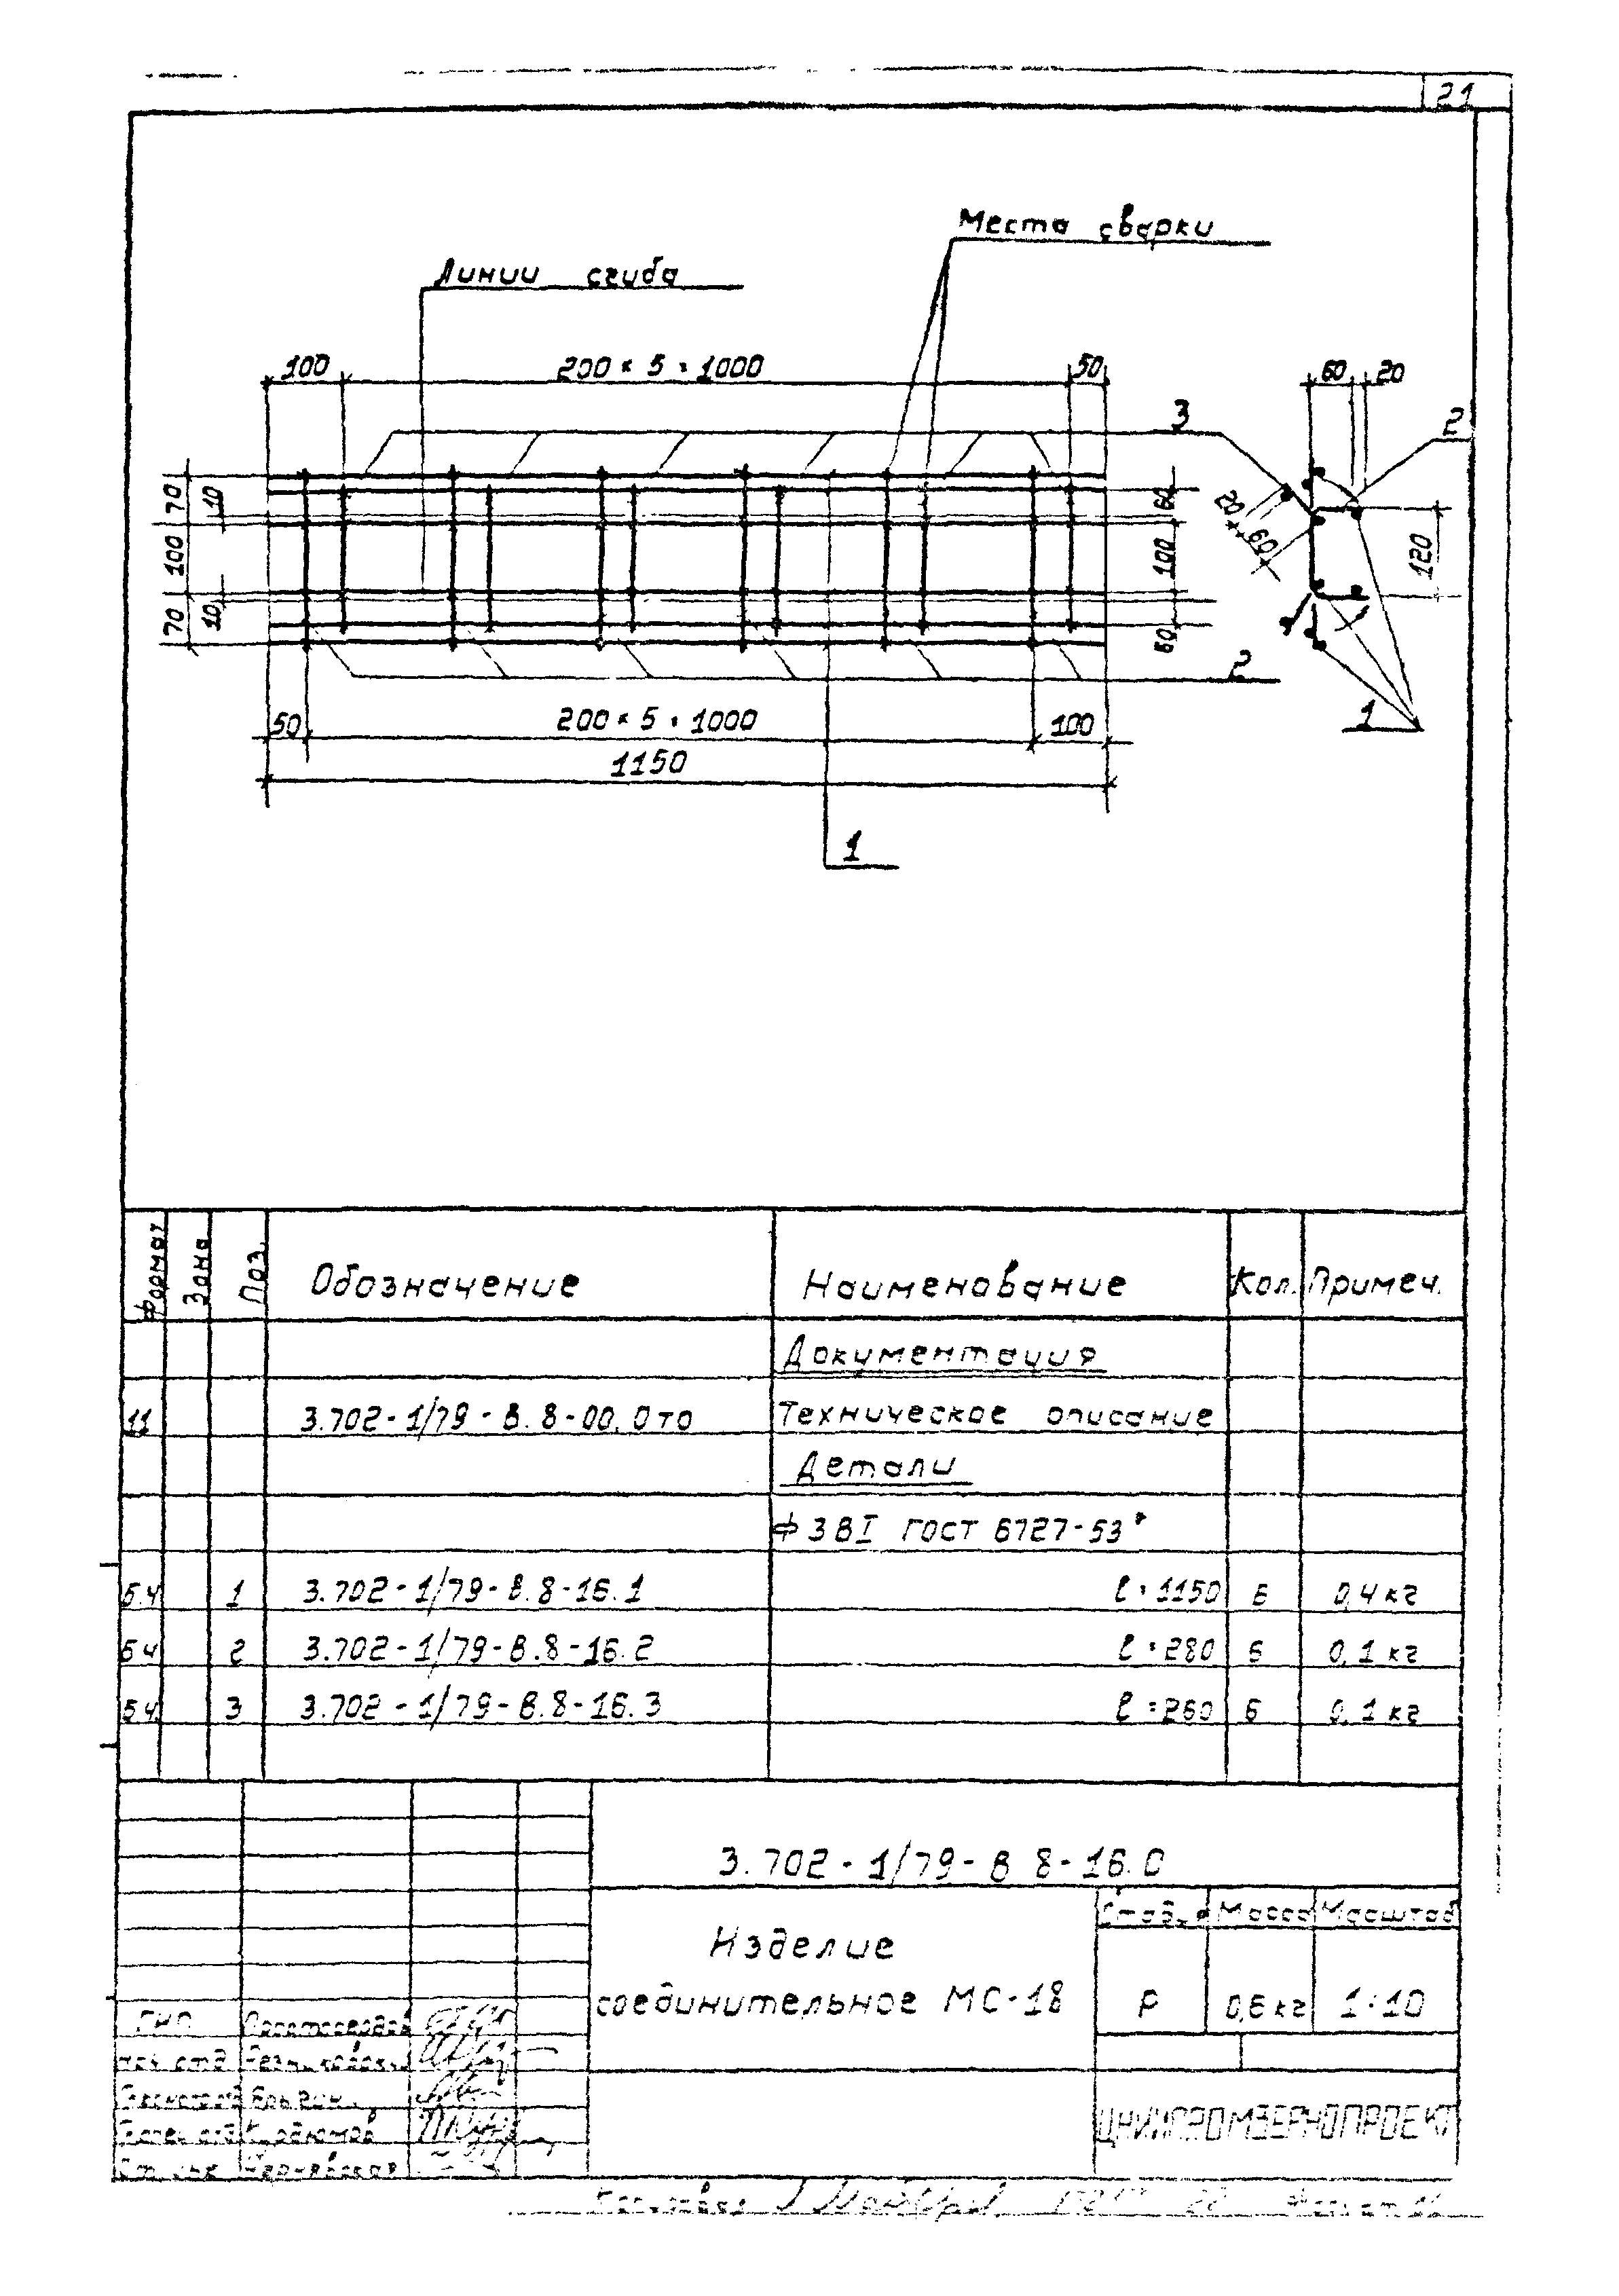 21
Места сварки
Линии сгиба
100 200 × 5 = 1000 50 60 20
3 2
70 10 60
20
100 100 60 120
70 10 60
2
1
50 200 × 5 = 1000 100
1150
1
Формат Зона Поз. Обозначение Наименование Кол. Примеч.
Документация
11 3.702-1/79-В.8-00.0ТО Техническое описание
Детали
ф3ВI ГОСТ 6727-53*
Б.Ч 1 3.702-1/79-В.8-16.1 ℓ=1150 6 0,4 кг
Б.Ч 2 3.702-1/79-В.8-16.2 ℓ=280 6 0,1 кг
Б.Ч. 3 3.702-1/79-В.8-16.3 ℓ=260 6 0,1 кг
3.702-1/79-В 8-16.0
Стадия Масса Масштаб
Изделие
соединительное МС-18 Р 0,6 кг 1:10
ГИП
нач отд
ЦНИИПРОМЗЕРНОПРОЕКТ
Формат